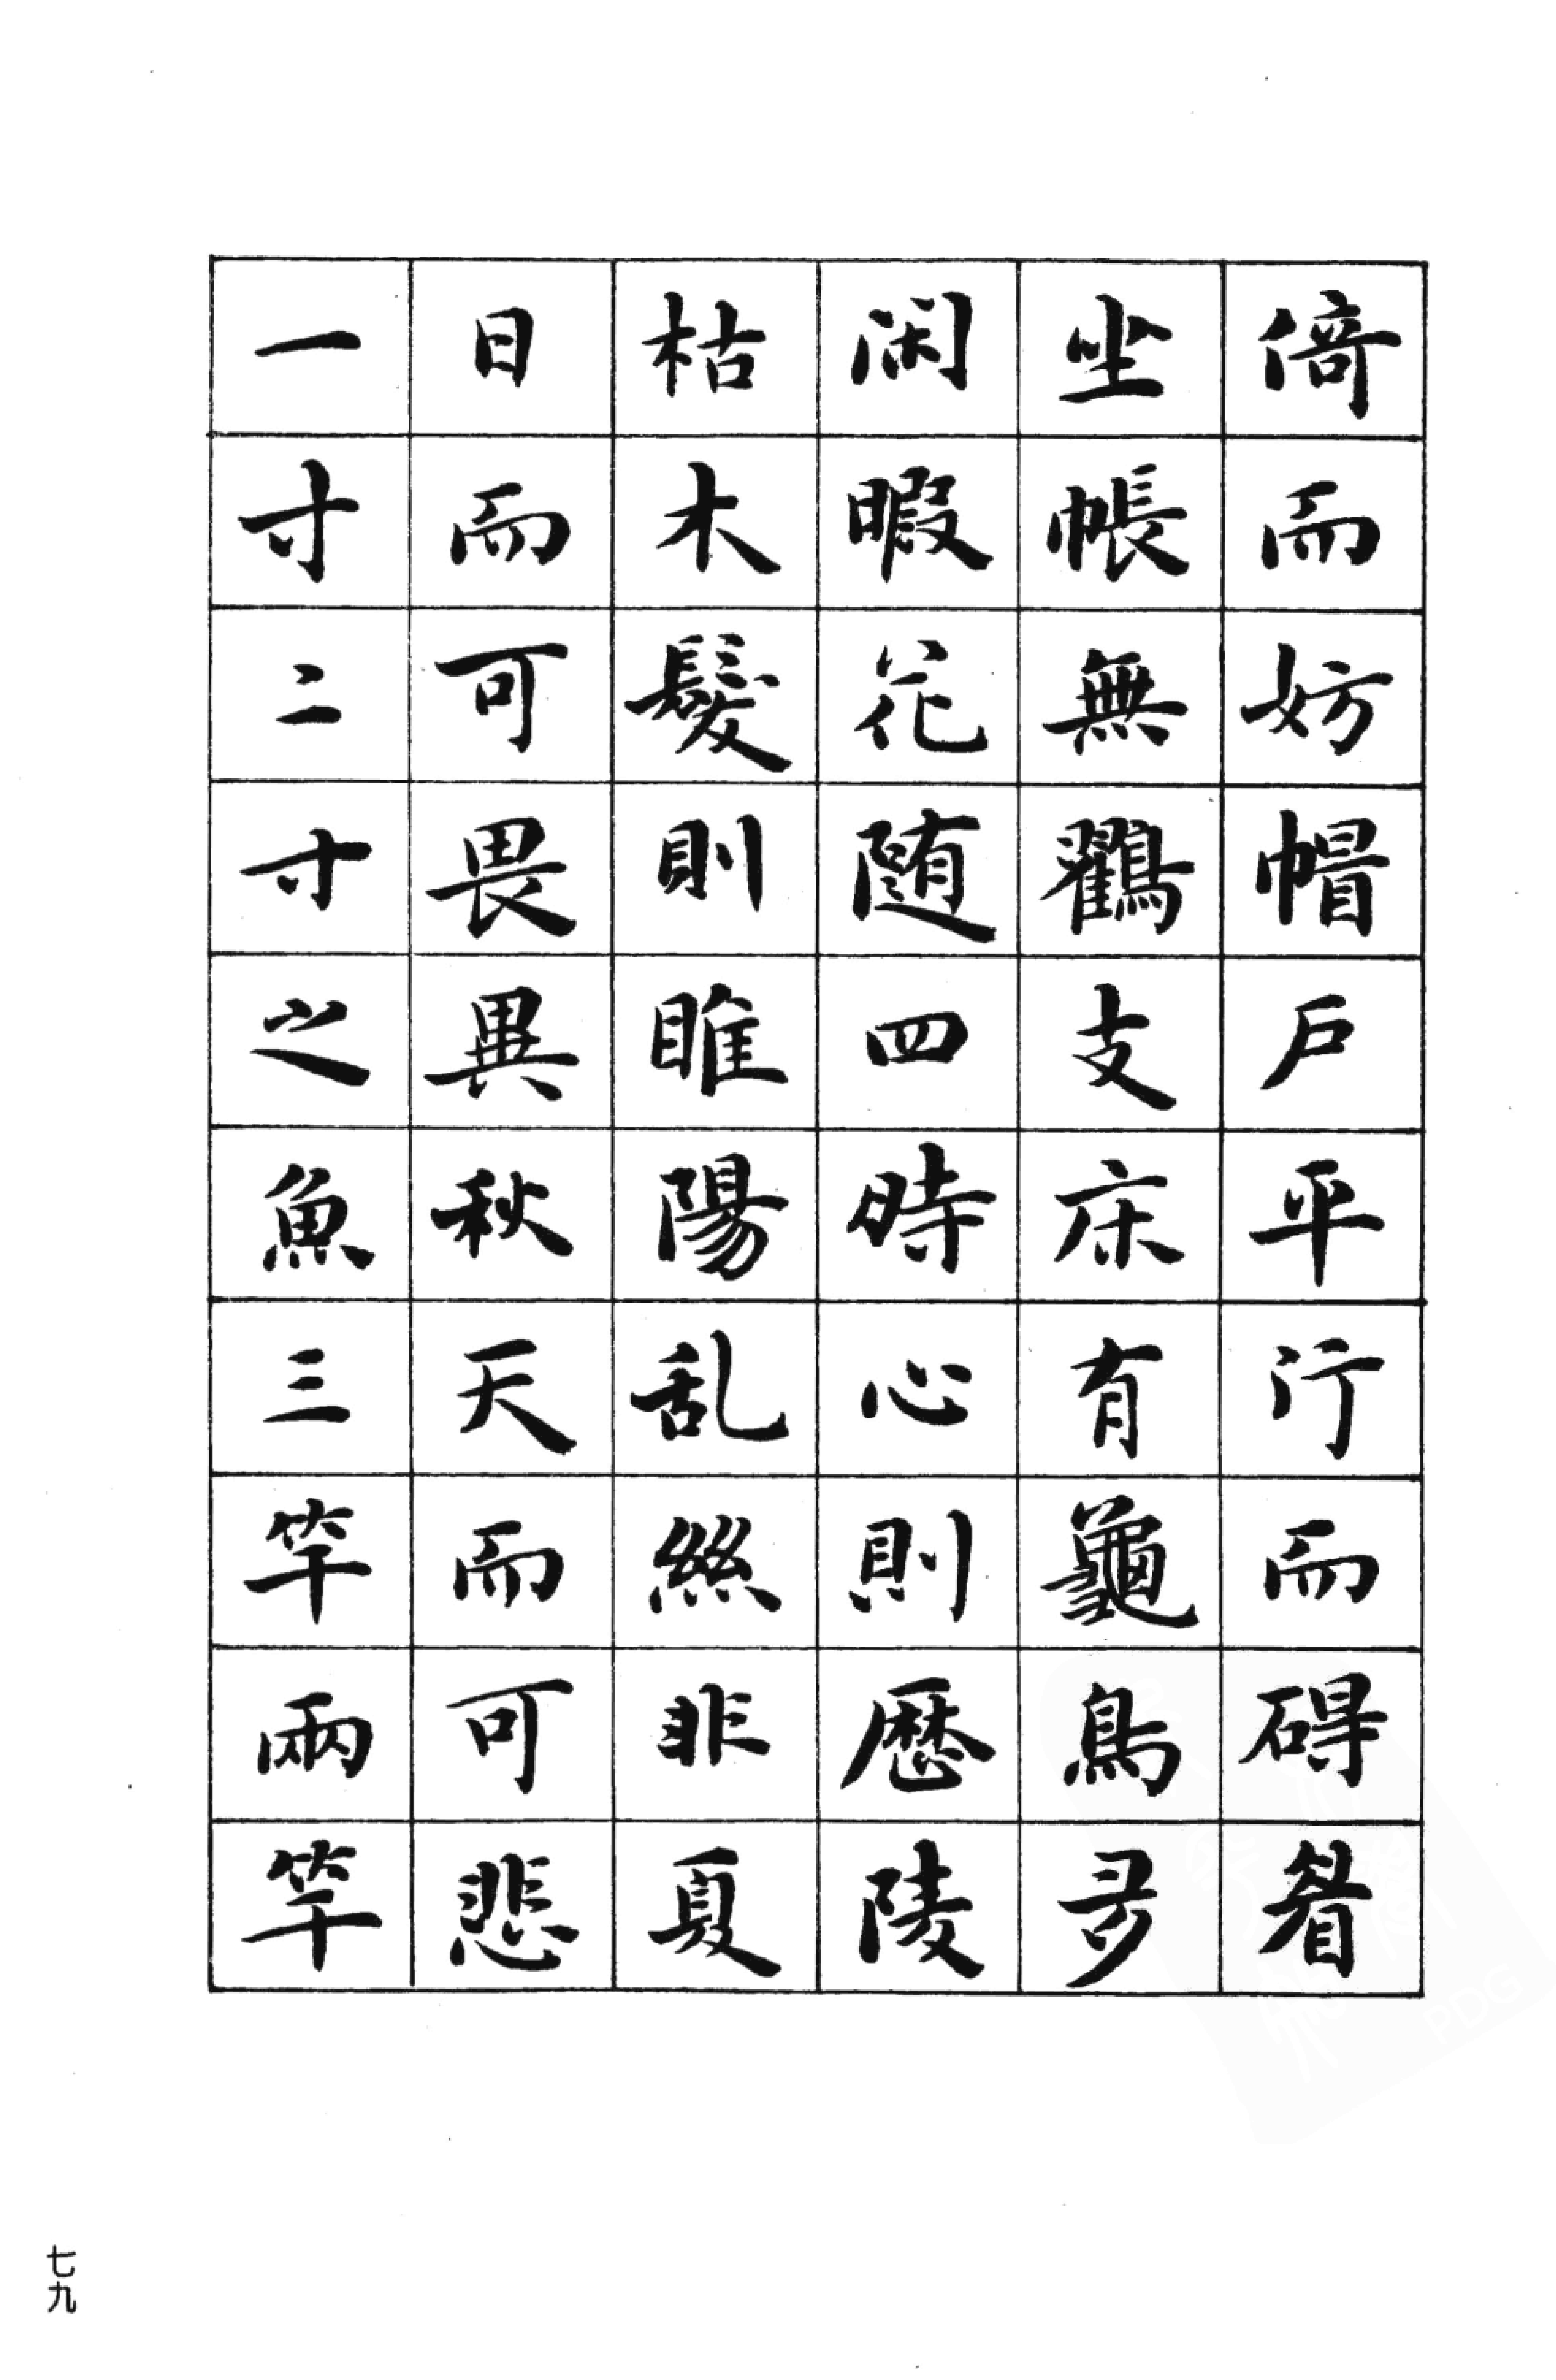 倚而妨帽戶平行而碍眉
坐帳無鸖支床有龜鳥多
閑暇花随四時心則歷陵
枯木髮則睢陽乱絲非夏
日而可畏異秋天而可悲
一寸二寸之魚三竿兩竿
七九